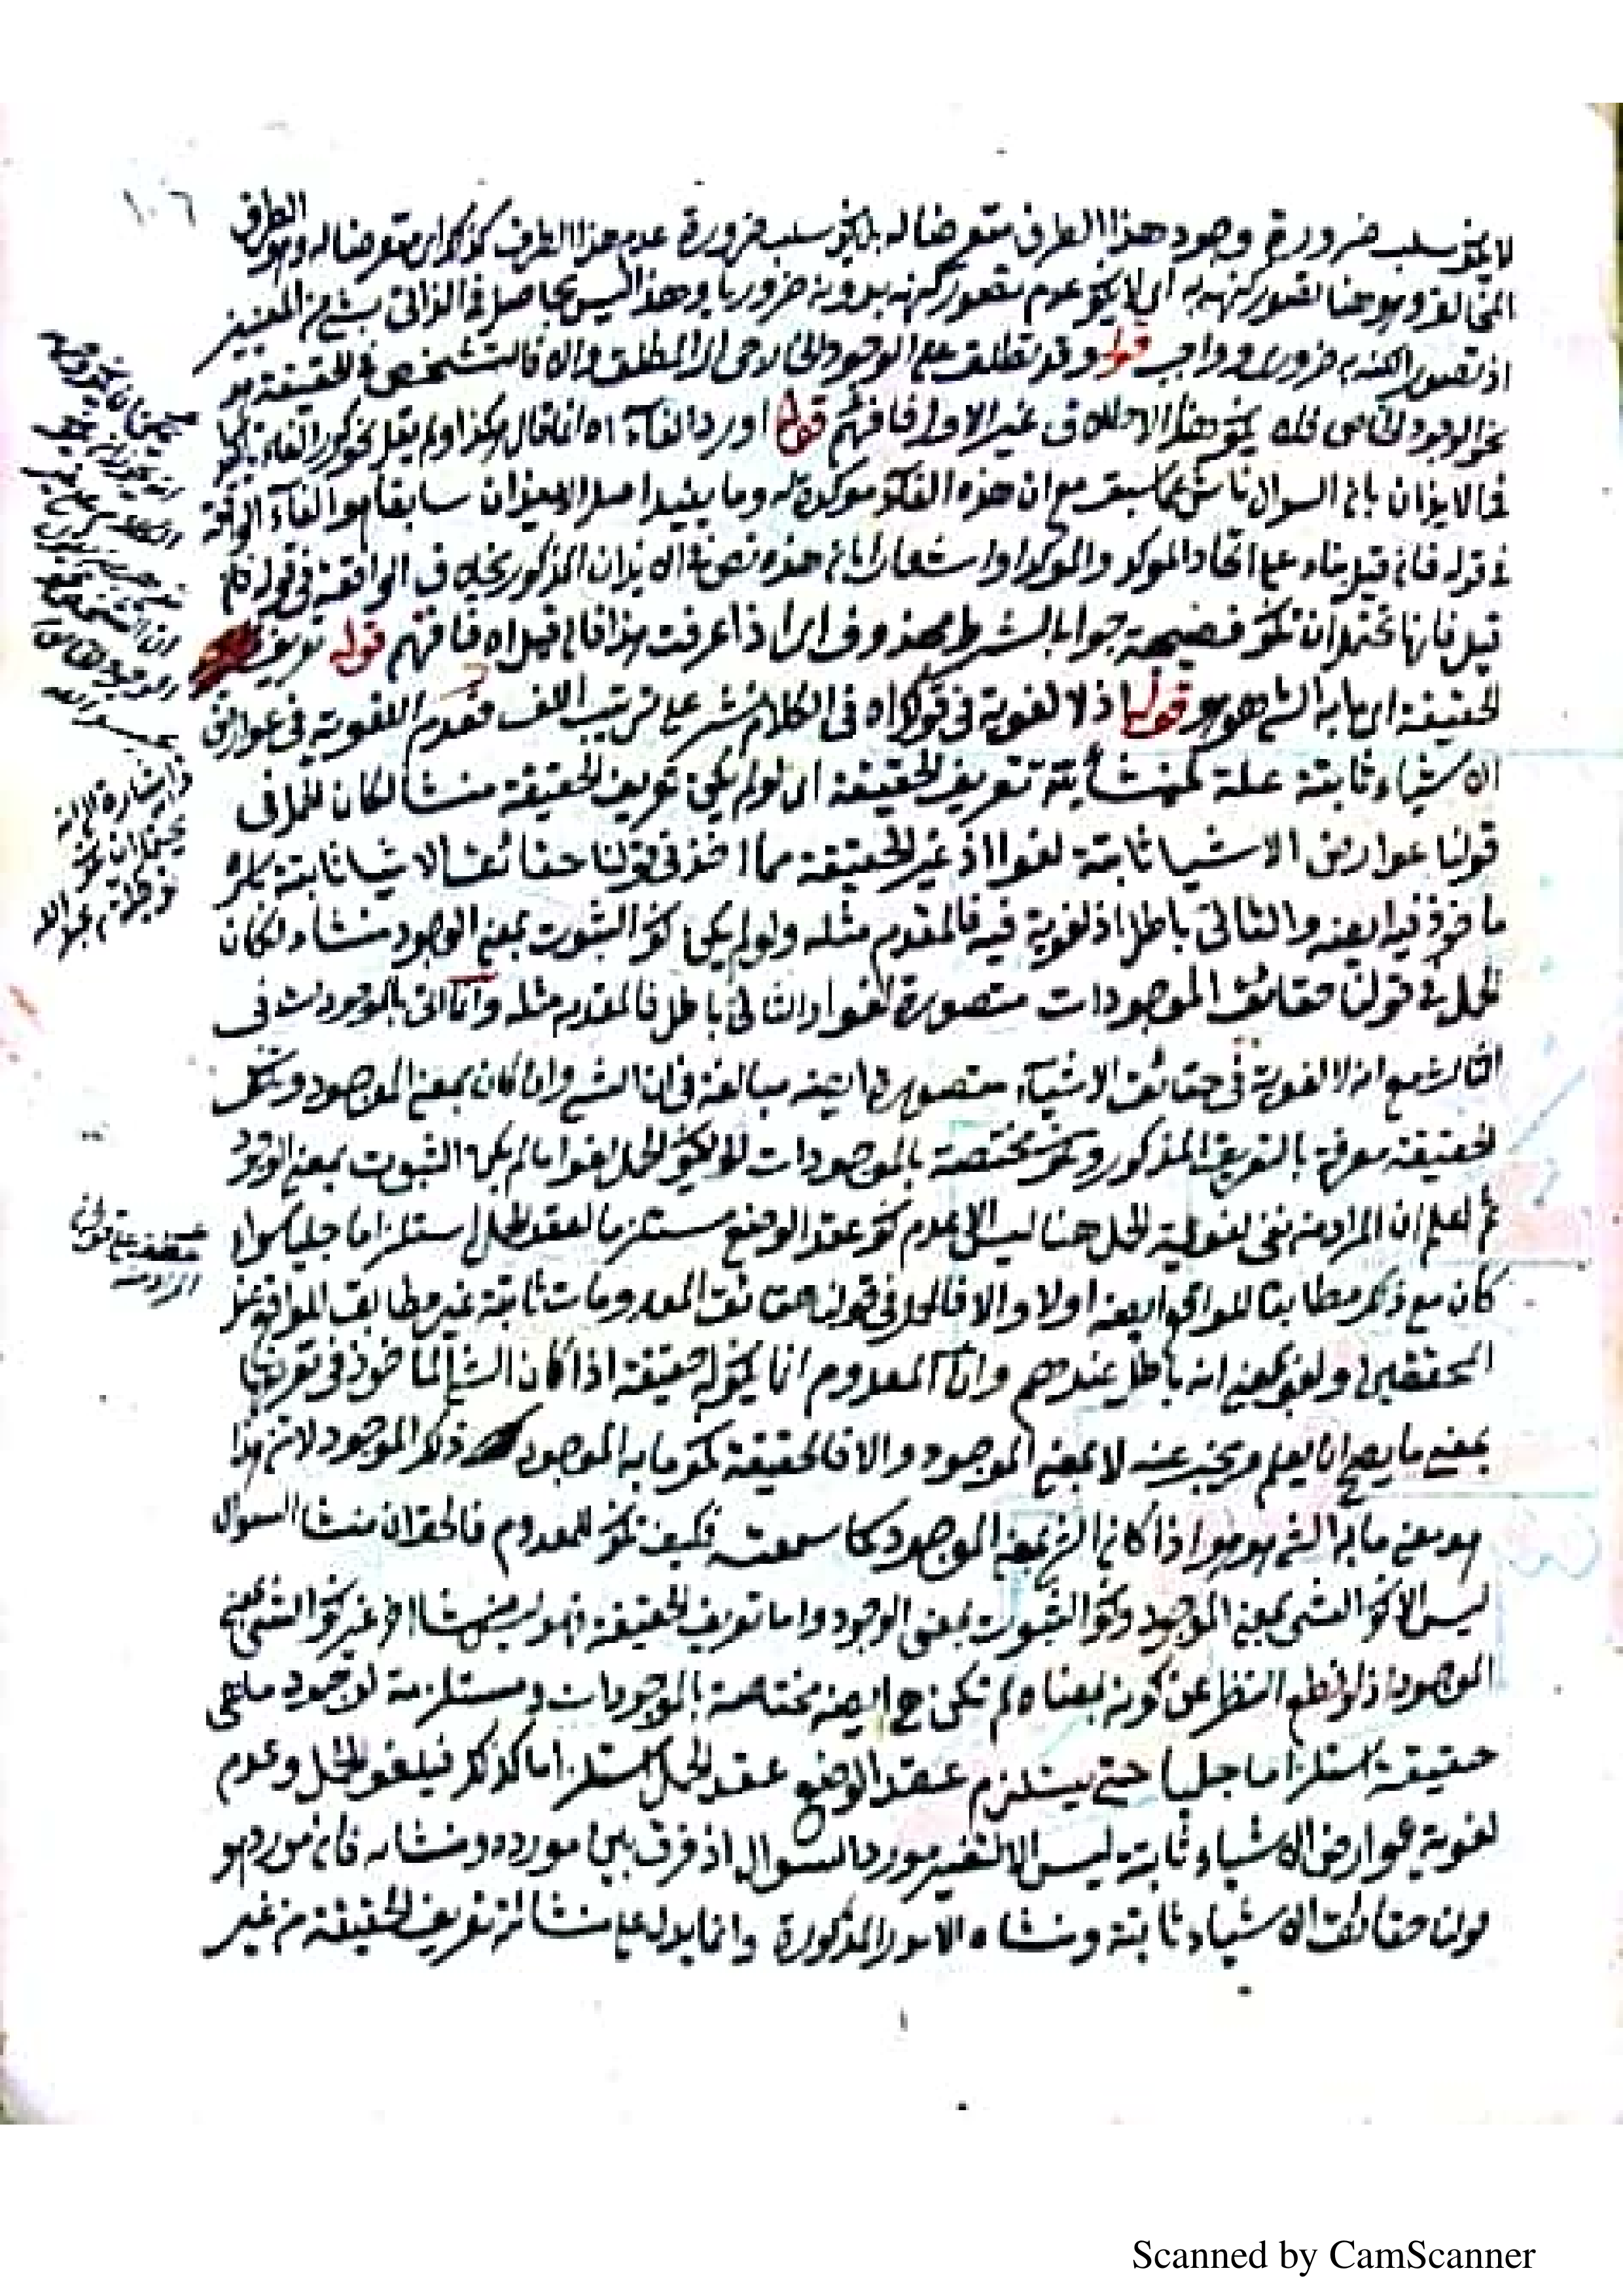 ١٠٦
لا يكون سلب ضرورة وجود هذا الطرف متعرضا له بل يكون سلب ضرورة عدم هذا الطرف كذلك اى متعرضا له وهو الطرف
المخالف وهو هنا تصور كنهه به اى لا يكون عدم تصور كنهه بدونه ضروريا وهذا ليس بحاصل فى الذاتى بشئ من المعنيين
اذ تصور الكنه به ضرورى وواجب قوله وقد تطلق على الوجود الخارجى اى المطلق والا فالتشخص فى الحقيقة هو
نحو الوجود الخاص فلا يكون هذا الاطلاق غير الاول فافهم قوله اورد الفاء اه انما قال هكذا ولم يقل
فى الايذان بان السؤال ناش عما سبق مع ان هذه الفاء مؤكدة له وما يفيد اصل الايذان سابقا هو الفاء الواقعة
فى قوله فان قيل بناء على اتحاد المؤكد والمؤكد او اشعارا بان هذه نص فى الايذان المذكور بخلاف الواقعة فى قوله فان
قيل فانها تحتمل ان تكون فصيحة جوابا لشرط محذوف اى اذا عرفت هذا فان قيل اه فافهم قوله تعريف
الحقيقة اى ما به الشئ هو هو قوله اذ لا لغوية فى قولك اه فى الكلام نشر على ترتيب اللف فعدم اللغوية فى عوارض
الاشياء ثابتة علة لمنشأية تعريف الحقيقة اى لو لم يكن تعريف الحقيقة منشأ لكان الحمل فى
قولنا عوارض الاشياء ثابتة لغوا اذ غير الحقيقة مما اخذ فى قولنا حقائق الاشيا ثابتة
مأخوذ فيه ايضه والتالى باطل اذ لا لغوية فيه فالمقدم مثله ولو لم يكن كون الثبوت بمعنى الوجود منشاء لكان
الحمل فى قولنا حقائق الموجودات متصورة لغوا والتالى باطل فالمقدم مثله وانما اتى بالموجودات فى
الثالث مع انه لا لغوية فى حقائق الاشياء متصورة ايضه مبالغة فى ان الشئ وان كان بمعنى الموجود وتكون
الحقيقة معرفة بالتعريف المذكور وتكون مختصة بالموجودات لا يكون الحمل لغوا ما لم يكن الثبوت بمعنى الوجود
ثم اعلم ان المراد من نفى لغوية الحمل هنا ليس الا عدم كون عقد الوضع مستلزما لعقد الحمل استلزاما جليا سواء
كان مع ذلك مطابقا للواقع ايضه اولا والا فالحمل فى قولنا حقائق المعدومات ثابتة غير مطابق للواقع عند
المحققين ولغو بمعنى انه باطل عندهم وانما المعدوم انما يكون له حقيقة اذا كان الشئ المأخوذ فى تعريفها
بمعنى ما يصح ان يعلم ويخبر عنه لا بمعنى الموجود والا فالحقيقة تكون ما به الموجود ذلك الموجود لان هذا
هو معنى ما به الشئ هو هو اذا كان الشئ بمعنى الموجود كما سمعت فكيف تكون للمعدوم فالحق ان منشأ السؤال
ليس الا كون الشئ بمعنى الموجود وكون الثبوت بمعنى الوجود واما تعريف الحقيقة فهو ليس منشأ اخر غير كون الشئ بمعنى
الموجود اذ لو قطع النظر عن كونه بمعناه لم تكن ح ايضه مختصة بالموجودات ومستلزمة لوجود ما هى
حقيقة استلزاما جليا حتى يستلزم عقد الوضع عقد الحمل استلزاما كذلك فيلغو الحمل وعدم
لغوية عوارض الاشياء ثابتة ليس الا لتغيير مورد السؤال اذ فرق بين مورده ومنشاه فان مورده هو
قولنا حقائق الاشياء ثابتة ومنشاه الامور المذكورة وانما يدل على منشائية تعريف الحقيقة من غير
اشارة الى انه
يحتمل ان يكون
Scanned by CamScanner